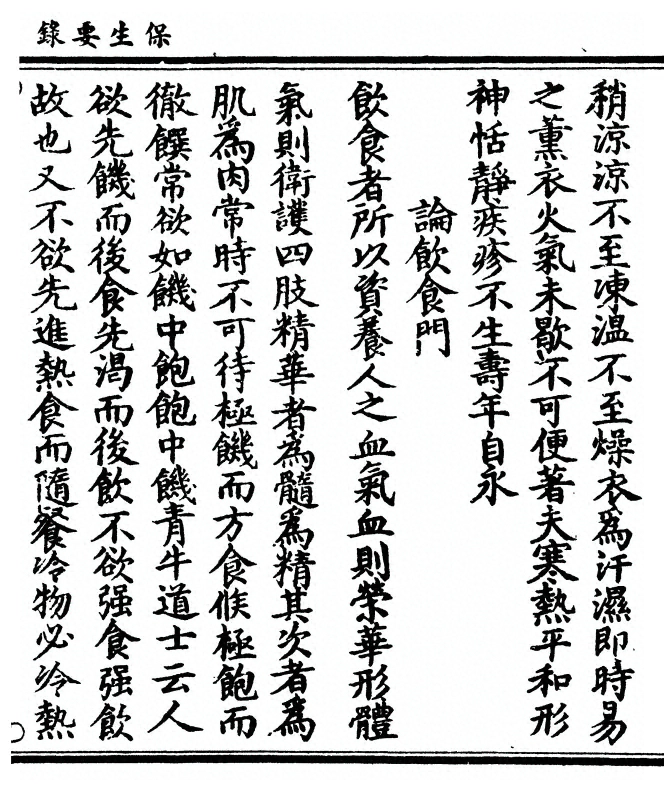 保生要錄
稍涼涼不至凍溫不至燥衣為汗濕即時易
之薰衣火氣未歇不可便著夫寒熱平和形
神恬靜疾疹不生壽年自永
論飲食門
飲食者所以資養人之血氣血則榮華形體
氣則衛護四肢精華者為髓為精其次者為
肌為肉常時不可待極饑而方食候極飽而
徹饌常欲如饑中飽飽中饑青牛道士云人
欲先饑而後食先渴而後飲不欲强食强飲
故也又不欲先進熱食而隨餐冷物必冷熱